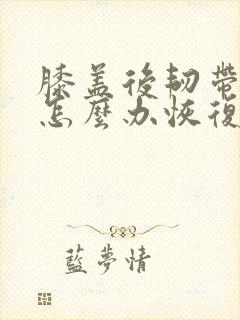 膝盖後韧帶
怎麼办恢復
藍夢情